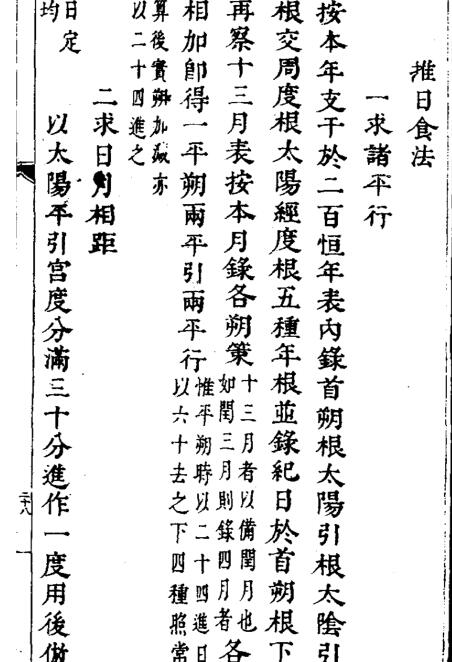 推日食法
一求諸平行
按本年支干於二百恒年表內錄首朔根太陽引根太陰引
根交周度根太陽經度根五種年根並錄紀日於首朔根下
再察十三月表按本月錄各朔策
十三月者以備閏月也
如閏三月則錄四月者
各
相加卽得一平朔兩平引兩平行
惟平朔時以二十四進日
以六十去之下四種照常
算後實朔加減亦
以二十四進之
二求日月相距
以太陽平引宮度分滿三十分進作一度用後倣
日定
均